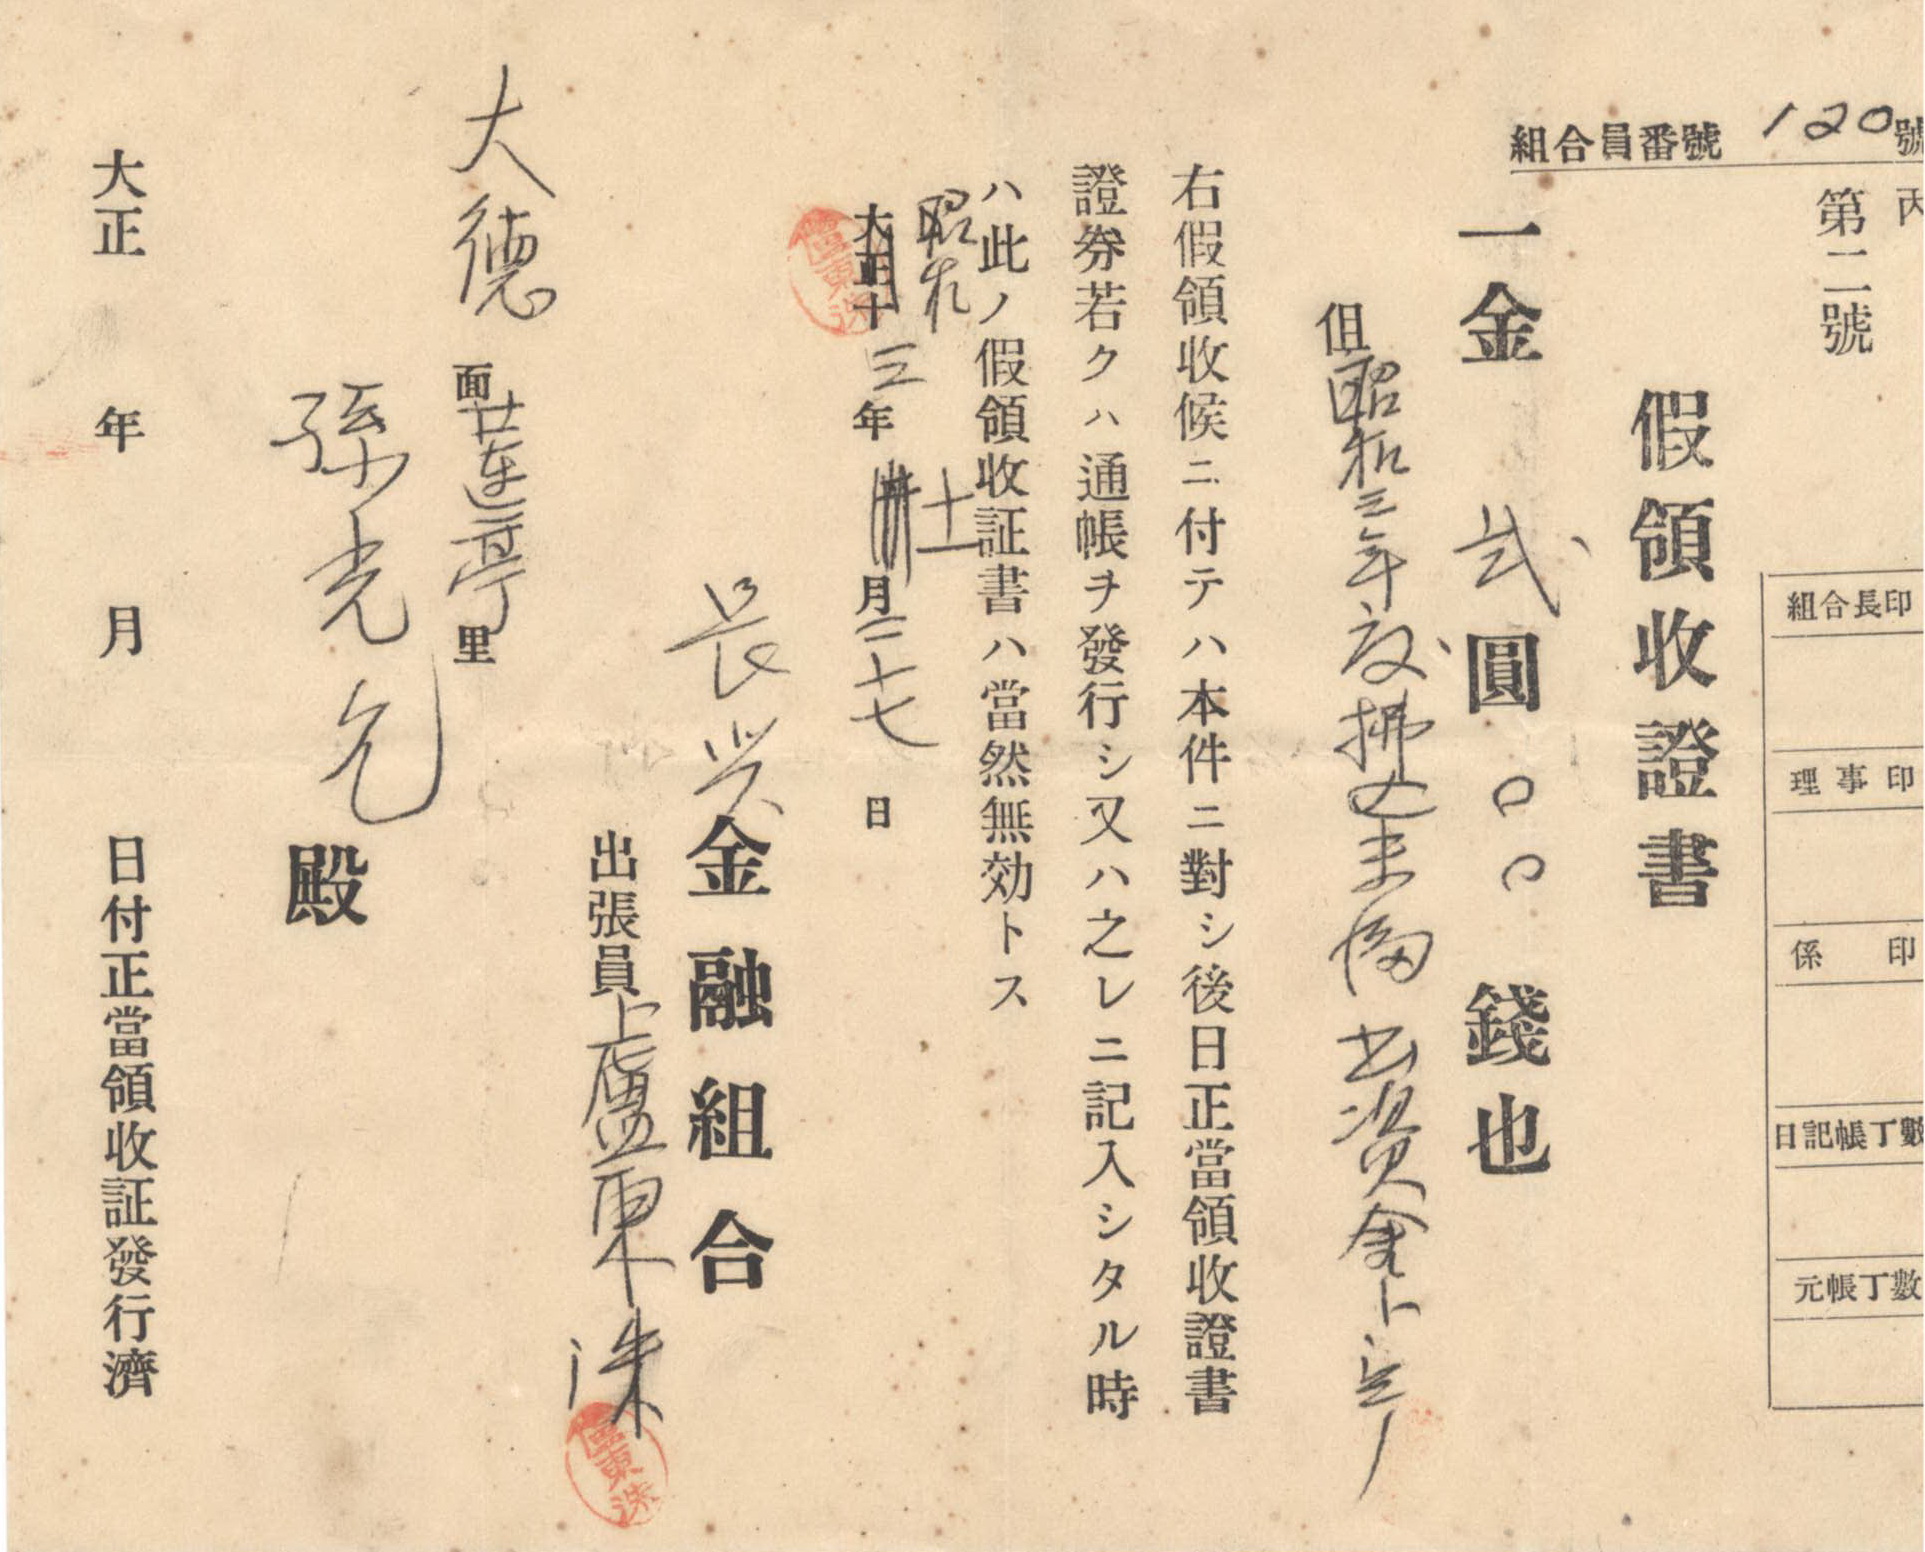 組合員番號 120 號
丙
第二號
組合長印
理事印
係印
日記帳丁數
元帳丁數
假領收證書
一金 弍圓〇〇錢也
但昭和三年度拂込未傷出資金ト シテ
右假領收候ニ付テハ本件ニ對シ後日正當領收證書
證券若クハ通帳ヲ發行シ又ハ之レニ記入シタル時
ハ此ノ假領收証書ハ當然無効トス
昭和 十一
大正十三年 月二十七日
長興金融組合
出張員 盧東洙
大德面 蓮亭里
孫光允 殿
大正 年 月 日付正當領收証發行濟